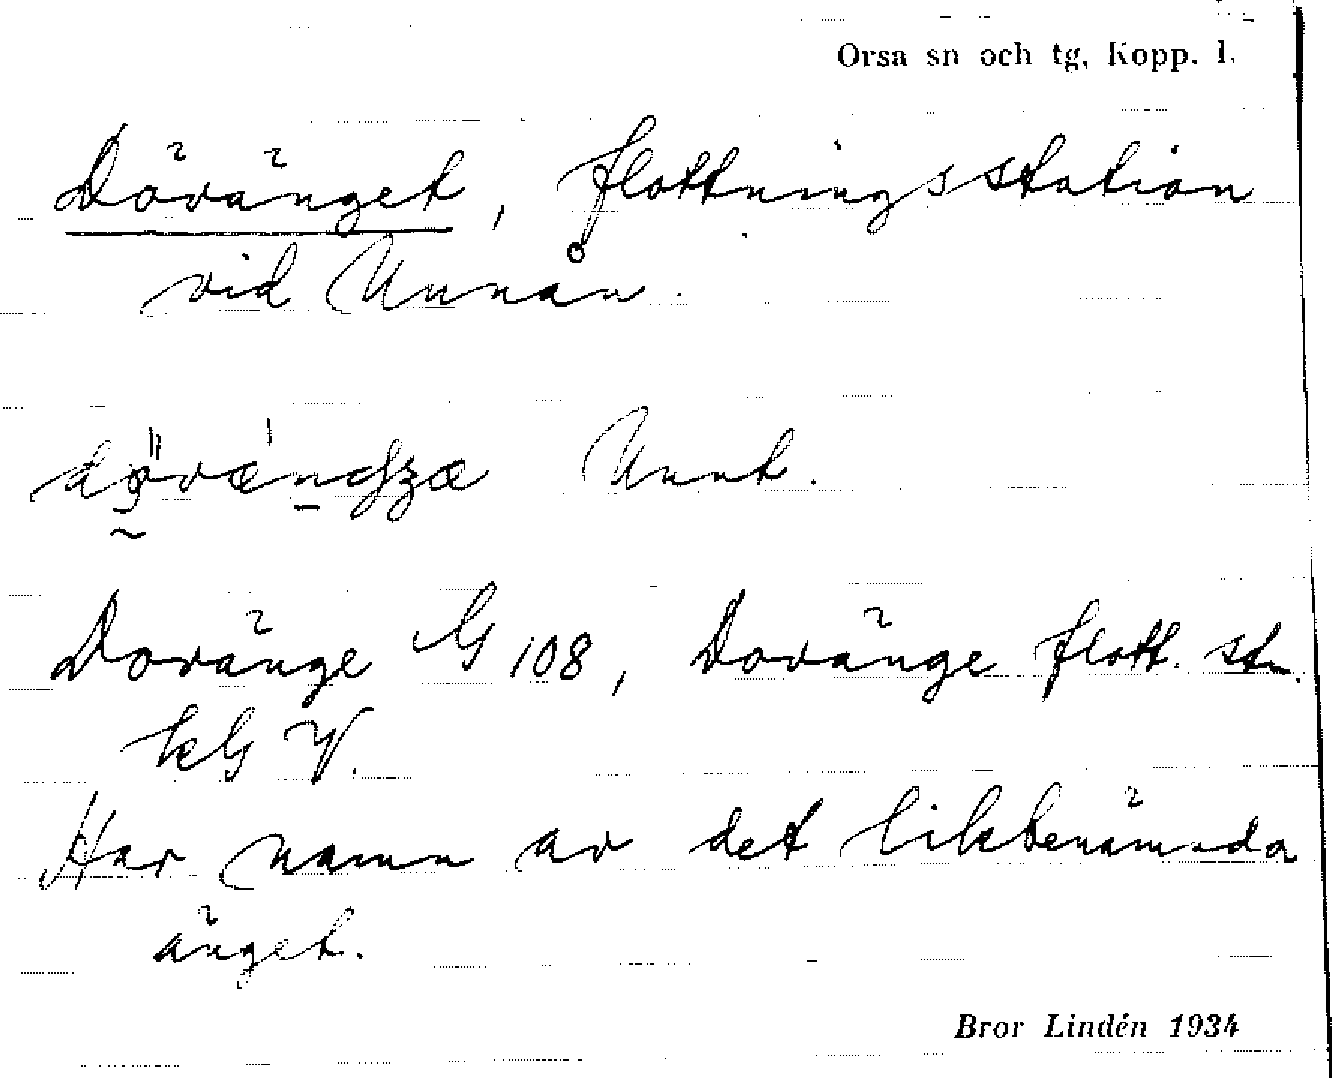 Orsa sn och tg, Kopp. l.
Dövänget, flottningsstation
vid Unnån.
Unnt.
Dovänge G 108, Dovänge flott. stn.
kG V.
Har namn av det likbenämnda
änget.
Bror Lindén 1934